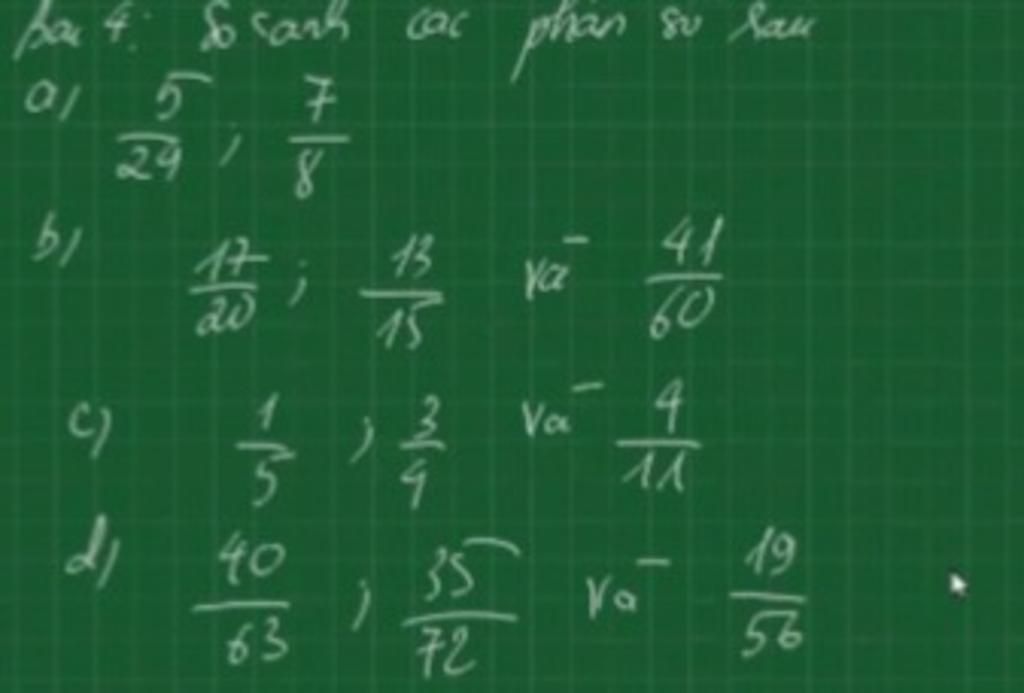 bài 4: So sánh các phân số sau
a) 5/24 ; 7/8
b) 17/20 ; 13/15 và 41/60
c) 1/5 ; 3/4 và 4/11
d) 40/63 ; 35/72 và 19/56